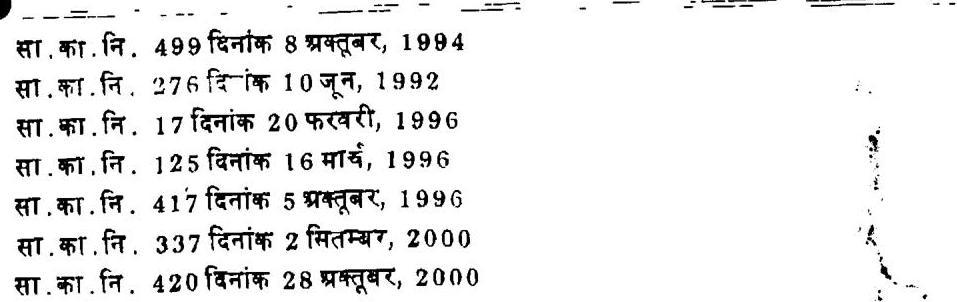 सा.का.नि. 499 दिनांक 8 अक्तूबर, 1994
सा.का.नि. 276 दिनांक 10 जून, 1992
सा.का.नि. 17 दिनांक 20 फरवरी, 1996
सा.का.नि. 125 दिनांक 16 मार्च, 1996
सा.का.नि. 417 दिनांक 5 अक्तूबर, 1996
सा.का.नि. 337 दिनांक 2 सितम्बर, 2000
सा.का.नि. 420 दिनांक 28 अक्तूबर, 2000